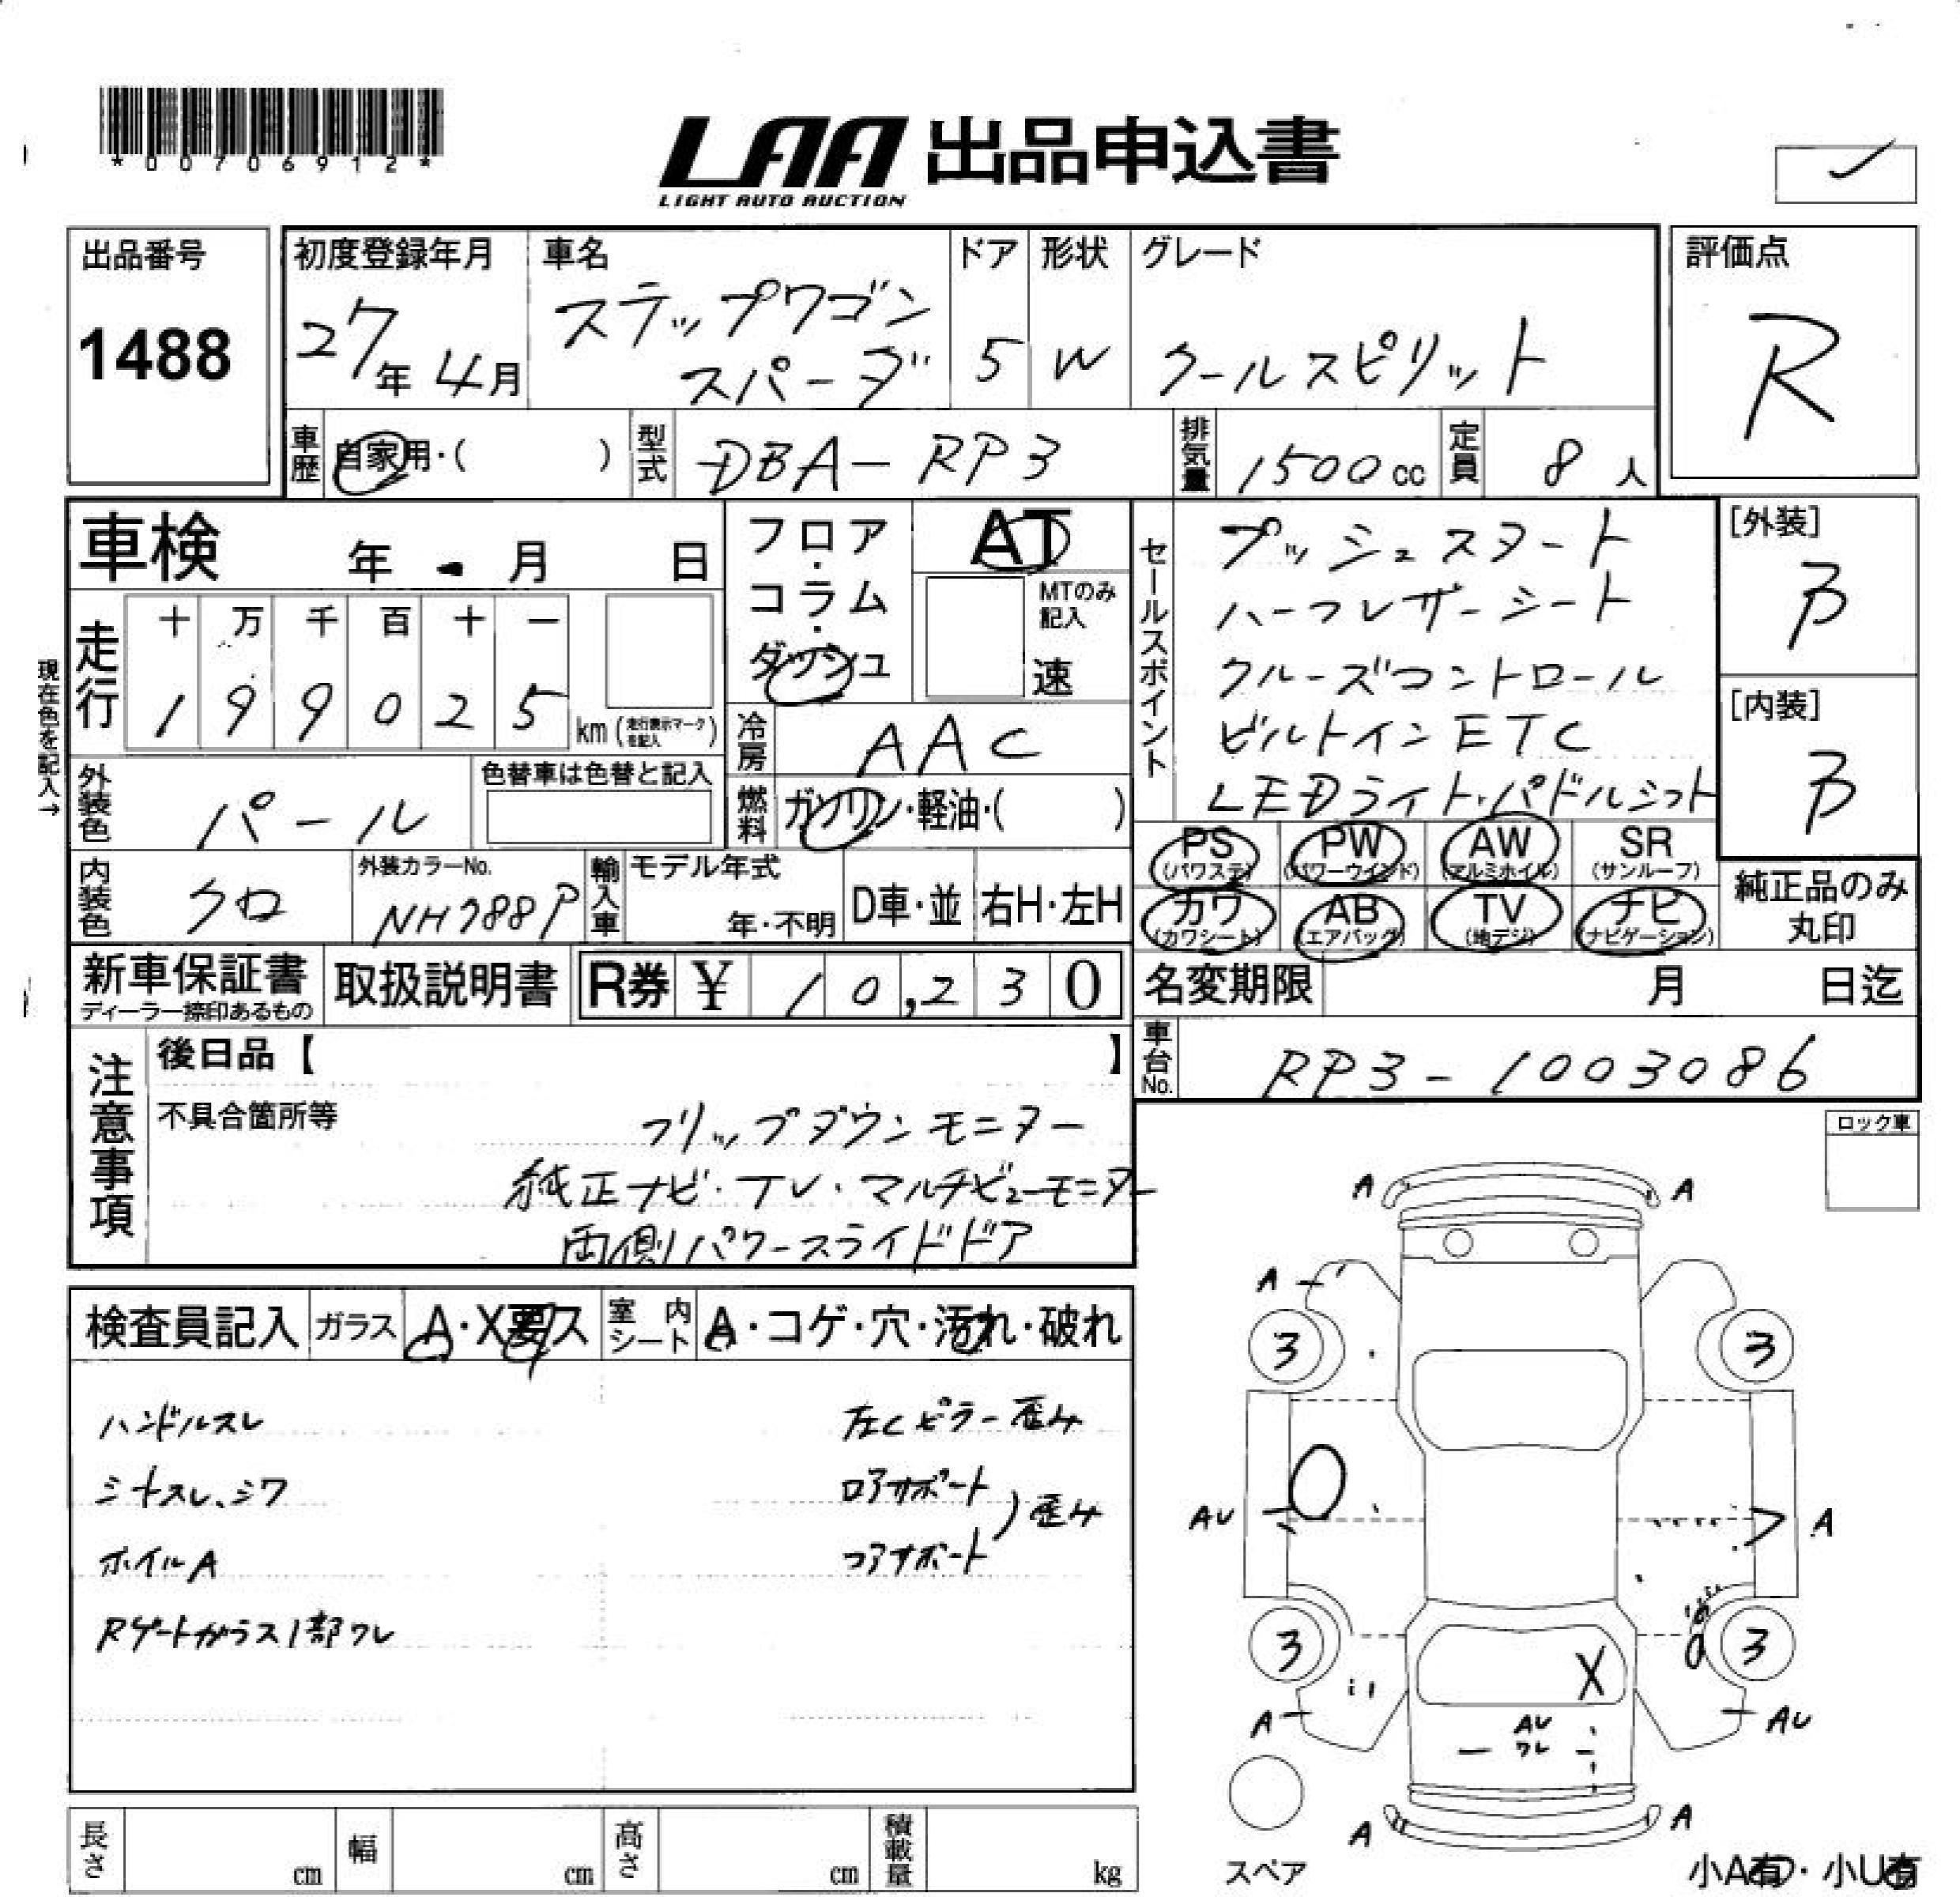 *00706912*
LAA 出品申込書
LIGHT AUTO AUCTION
出品番号
1488
初度登録年月
27年 4月
車名
ステップワゴン
スパーダ
ドア
5
形状
W
グレード
クールスピリット
評価点
R
車歴
自家用・( )
型式
DBA-RP3
排気量
1500cc
定員
8人
車検 年 月 日
走行
十 万 千 百 十 一
1 9 9 0 2 5
km(走行表示マークを記入)
現在色を記入→
フロア・コラム・ダッシュ
AT
MTのみ記入
速
冷房
AAC
燃料
ガソリン・軽油・( )
セールスポイント
プッシュスタート
ハーフレザーシート
クルーズコントロール
ビルトインETC
LEDライト・パドルシフト
[外装]
B
[内装]
B
外装色
パール
色替車は色替と記入
内装色
クロ
外装カラーNo.
NH788P
輸入車
モデル年式
年・不明
D車・並
右H・左H
PS (パワステ)
PW (パワーウインド)
AW (アルミホイル)
SR (サンルーフ)
カワ (カワシート)
AB (エアバッグ)
TV (地デジ)
ナビ (ナビゲーション)
純正品のみ
丸印
新車保証書
ディーラー捺印あるもの
取扱説明書
R券 ¥ 10,230
名変期限 月 日迄
車台No.
RP3-1003086
注意事項
後日品【 】
不具合箇所等
フリップダウンモニター
純正ナビ・TV・マルチビューモニター
両側パワースライドドア
ロック車
検査員記入
ガラス
A・X要ス
室内シート
A・コゲ・穴・汚れ・破れ
ハンドルスレ
シートスレ、シワ
ホイルA
Rゲートガラス1部ワレ
左Cピラー歪み
ロアサポート
コアサポート
)歪み
A A
A
3 3
AU A
3 3
X
A AU
AU
ワレ
A A
スペア
小A有・小U有
長さ cm
幅 cm
高さ cm
積載量 kg